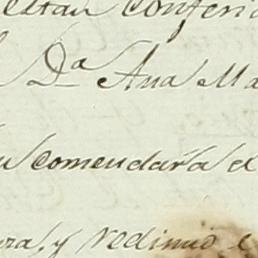 estan conferi
Dª Ana Ma
u comendara d
ra, y redimio e